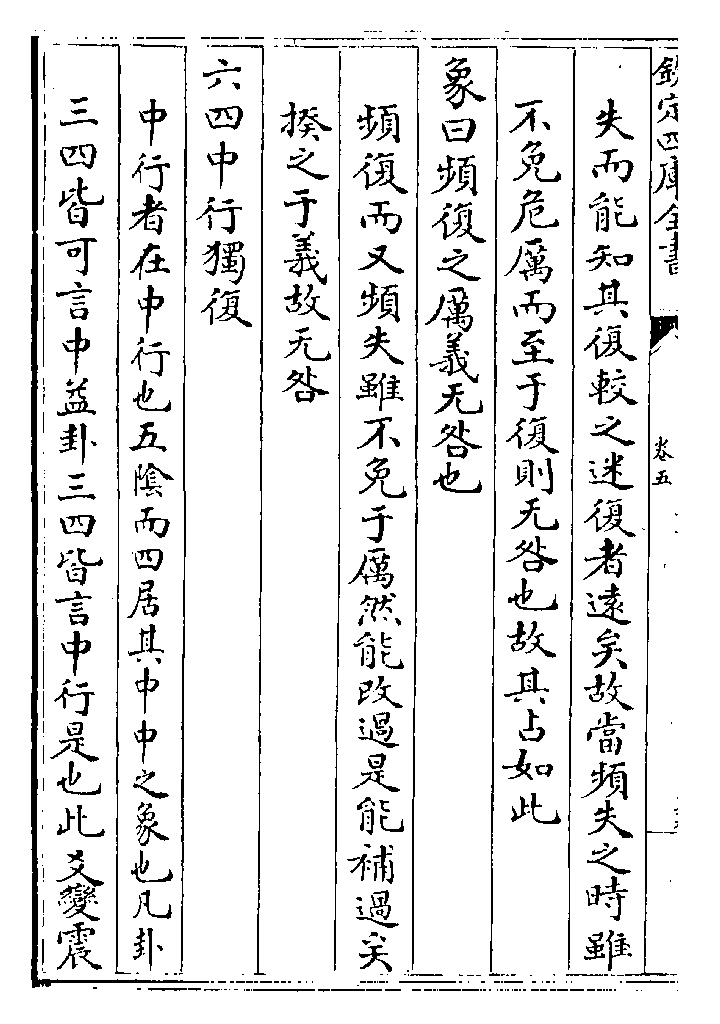 欽定四庫全書
卷五
失而能知其復較之迷復者遠矣故當頻失之時雖
不免危厲而至于復則无咎也故其占如此
象曰頻復之厲義无咎也
頻復而又頻失雖不免于厲然能改過是能補過矣
揆之于義故无咎
六四中行獨復
中行者在中行也五陰而四居其中中之象也凡卦
三四皆可言中益卦三四皆言中行是也此爻變震